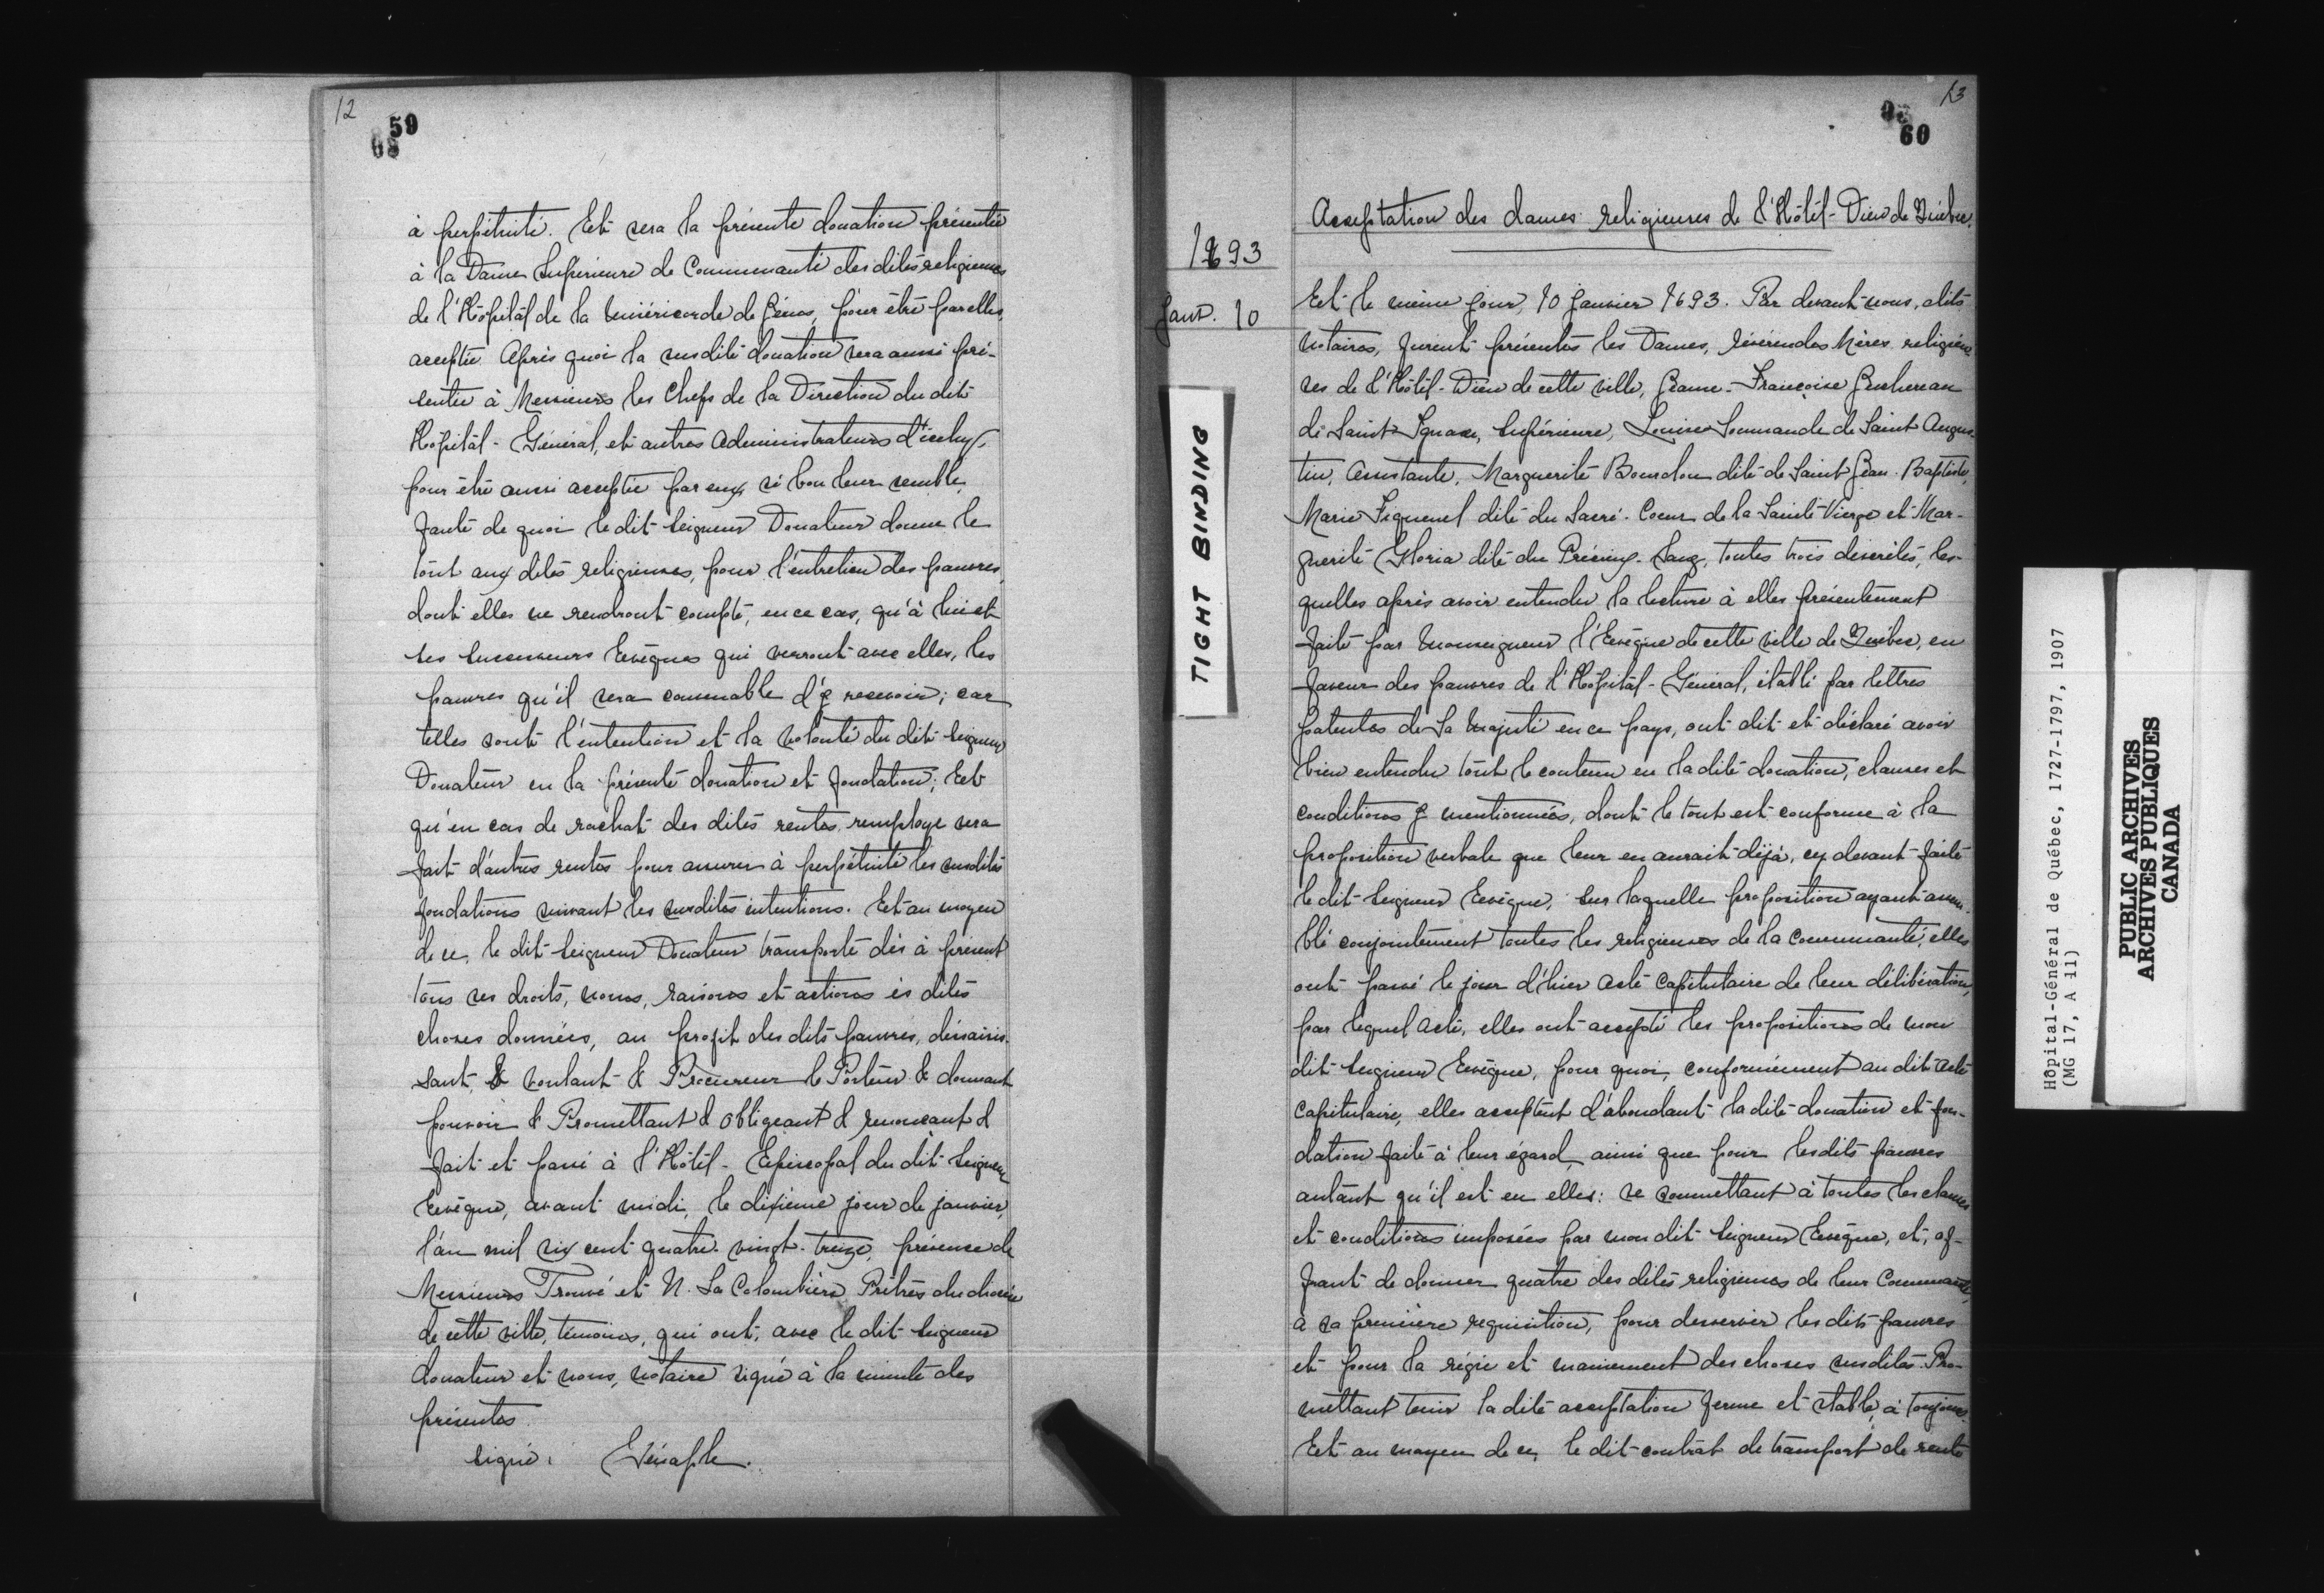 12
59
68
à perpétuité. Et sera la présente donation présentée
à la Dame Supérieure de Communauté des dites religieuses
de l'Hôpital de la miséricorde de Jésus, pour être par elles,
acceptée. Après quoi la susdite donation sera aussi pré-
sentée à Messieurs les Chefs de la Direction du dit
Hôpital-Général, et autres Administrateurs d'icelui,
pour être aussi acceptée par eux, si bon leur semble,
faute de quoi le dit Seigneur Donateur donne le
tout aux dites religieuses, pour l'entretien des pauvres,
dont elles ne rendront compte, en ce cas, qu'à lui et
ses successeurs Evêques qui verront avec elles, les
pauvres qu'il sera convenable d'y recevoir; car
telles sont l'intention et la volonté du dit Seigneur
Donateur en la présente donation et fondation; Et
qu'en cas de rachat des dites rentes, remploye sera
fait d'autres rentes pour assurer à perpétuité les susdites
fondations suivant les susdites intentions. Et au moyen
de ce, le dit Seigneur Donateur transporte dès à présent
tous ses droits, noms, raisons et actions ès dites
choses données, au profit des dits pauvres, déssaisis-
sant, & voulant & Procureur le Porteur & donnant
pouvoir & Promettant & obligeant & renonçant &
fait et passé à l'Hôtel-Episcopal du dit Seigneur
Evêque, avant midi, le dixième jour de janvier,
l'an mil six cent quatre-vingt-treize, présence de
Messieurs Trouvé et N. La Colombière Prêtres du diocèse
de cette ville, témoins, qui ont, avec le dit Seigneur
donateur et nous, notaire signé à la minute des
présentes.
signé: Génaple.
13
60
1693
Janv. 10
Acceptation des dames religieuses de l'Hôtel-Dieu de Québec.
Et le même jour, 10 janvier 1693. Par devant nous, dits
notaires, furent présentes les Dames, révérendes Mères religieu-
ses de l'Hôtel-Dieu de cette ville, Jeanne-Françoise Juchereau
de Saint Ignace, Supérieure, Louise Soumande de Saint Augus-
tin, Assistante, Marguerite Bourdon dite de Saint Jean-Baptiste,
Marie Fiquenel dite du Sacré-Coeur de la Sainte Vierge et Mar-
guerite Gloria dite du Précieux-Sang, toutes trois discrètes, les-
quelles après avoir entendu la lecture à elles présentement
faite par Monseigneur l'Evêque de cette ville de Québec, en
faveur des pauvres de l'Hôpital-Général, établi par lettres
patentes de Sa Majesté en ce pays, ont dit et déclaré avoir
bien entendu tout le contenu en la dite donation, clauses et
conditions y mentionnées, dont le tout est conforme à la
proposition verbale que leur en aurait déjà, cy devant faite
le dit Seigneur Evêque, sur laquelle proposition ayant assem-
blé conjointement toutes les religieuses de la Communauté, elles
ont passé le jour d'hier acte Capitulaire de leur délibération,
par lequel acte, elles ont accepté les propositions de mon
dit Seigneur Evêque, pour quoi, conformément au dit acte
Capitulaire, elles acceptent d'abondant la dite donation et fon-
dation faite à leur égard, ainsi que pour les dits pauvres
autant qu'il est en elles: se soumettant à toutes les clauses
et conditions imposées par mon dit Seigneur Evêque, et, of-
frant de donner quatre des dites religieuses de leur Communauté,
à sa première requisition, pour desservir les dits pauvres
et pour la régie et maniement des choses susdites. Pro-
mettant tenir la dite acceptation ferme et stable, à toujours.
Et au moyen de ce, le dit contrat de transport de rente
TIGHT BINDING
Hôpital-Général de Québec, 1727-1797, 1907
(MG 17, A 11)
PUBLIC ARCHIVES
ARCHIVES PUBLIQUES
CANADA